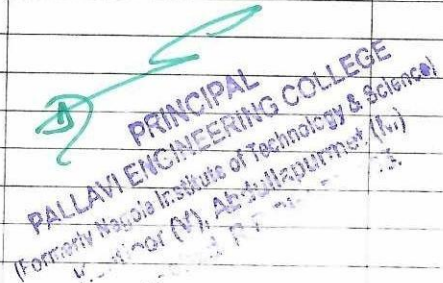 PRINCIPAL
PALLAVI ENGINEERING COLLEGE
(Formerly Nagole Institute of Technology & Science)
(V), Abdullapurmet (M)